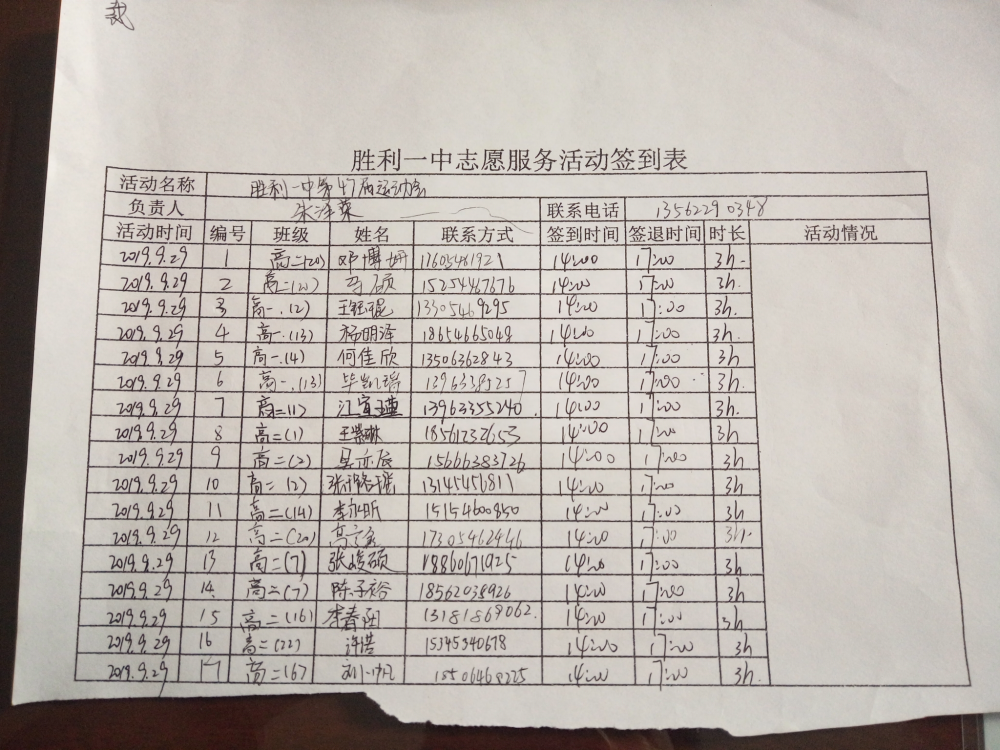 胜利一中志愿服务活动签到表
活动名称 胜利一中第47届运动会
负责人 朱泽荣 联系电话 13562290348
活动时间 编号 班级 姓名 联系方式 签到时间 签退时间 时长 活动情况
2019.9.29 1 高二(20) 邓博妍 17605481921 14:00 17:00 3h.
2019.9.29 2 高二(20) 马硕 15254467676 14:00 17:00 3h.
2019.9.29 3 高一.(2) 王钰琨 13305469295 14:00 17:00 3h.
2019.9.29 4 高一.(13) 杨明泽 18654665048 14:00 17:00 3h.
2019.9.29 5 高一.(4) 何佳欣 13506362843 14:00 17:00 3h.
2019.9.29 6 高一.(13) 毕凯瑞 14:00 17:00 3h.
2019.9.29 7 高二(1) 江宜瑾 13963355240 14:00 17:00 3h.
2019.9.29 8 高二(1) 18561232653 14:00 17:00 3h
2019.9.29 9 高二(2) 吴亦辰 15666383726 14:00 17:00 3h
2019.9.29 10 高二(2) 13145456811 14:00 17:00 3h
2019.9.29 11 高二(14) 李永昕 15154600850 14:00 17:00 3h
2019.9.29 12 高二(20) 17305462446 14:00 17:00 3h.
2019.9.29 13 高二(7) 张峻硕 18860671925 14:00 17:00 3h
2019.9.29 14 高二(7) 陈子裕 18562038926 14:00 17:00 3h
2019.9.29 15 高二(16) 李春阳 13181869062. 14:00 17:00 3h
2019.9.29 16 高二(22) 许诺 15345340678 14:00 17:00 3h
2019.9.29 17 高二(6) 刘一帆 18506468225 14:00 17:00 3h.